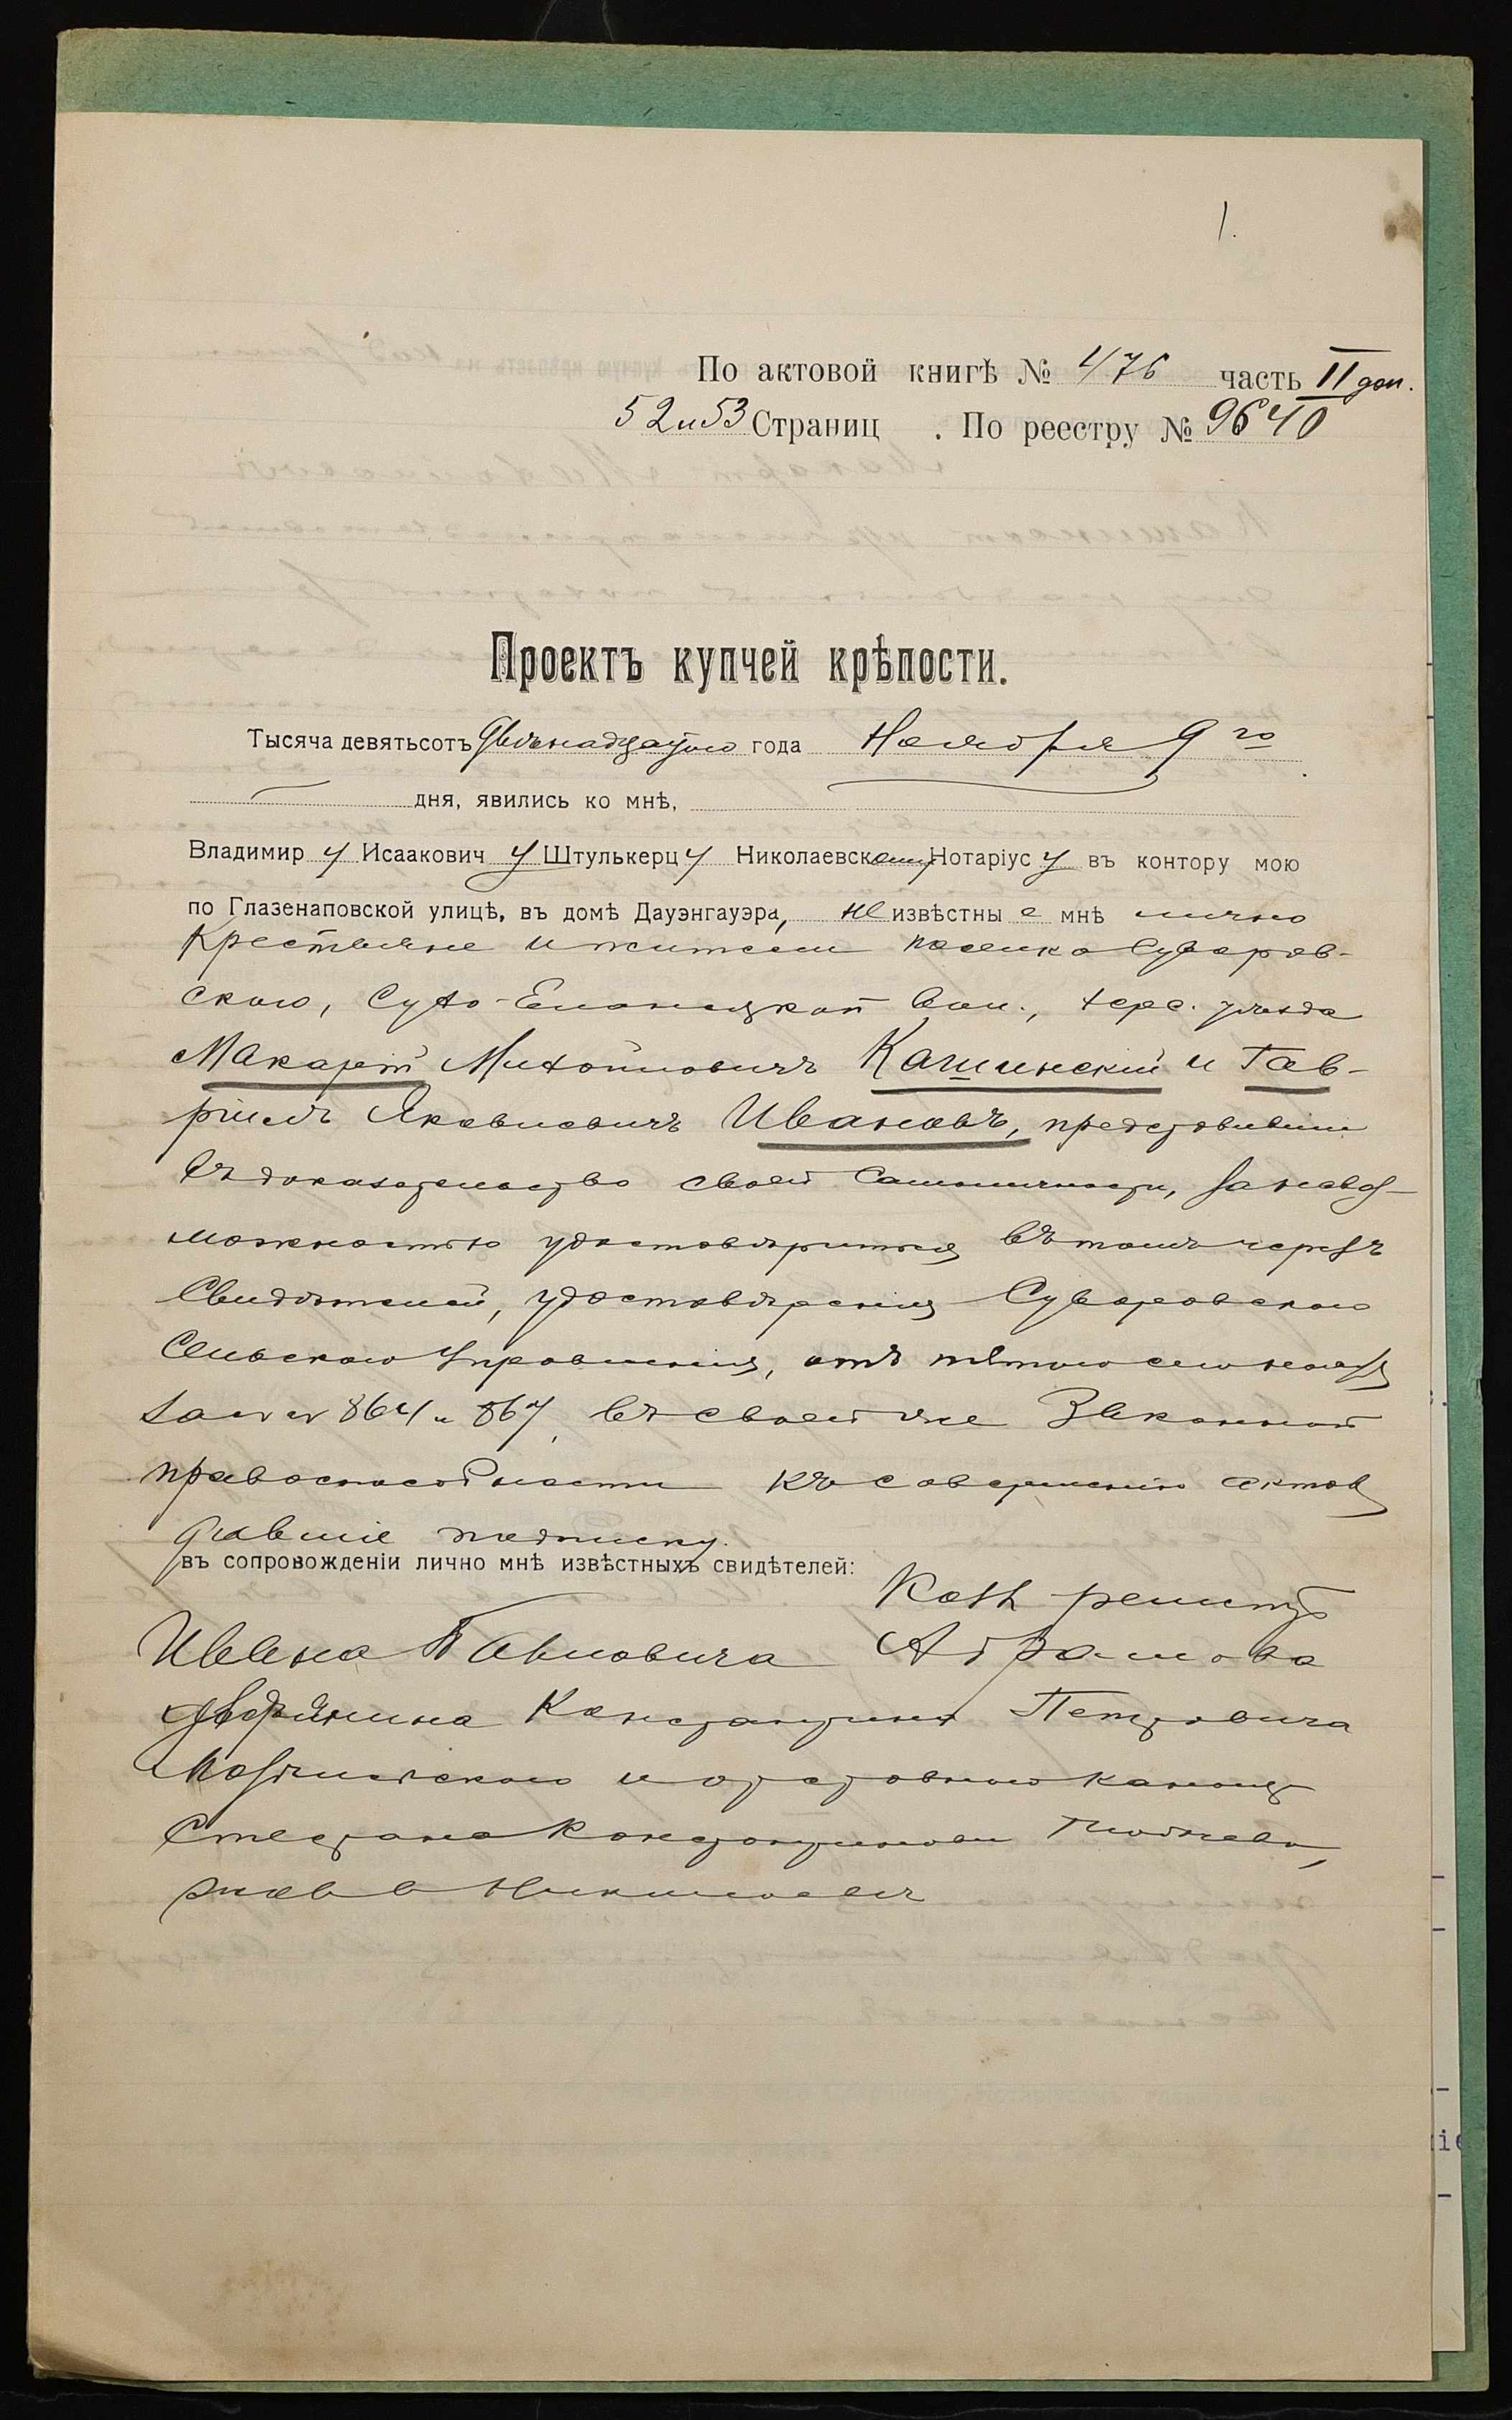 1.
По актовой книгѣ № 476 часть II доп.
52 и 53 Страниц . По реестру № 9640
Проектъ купчей крѣпости.
Тысяча девятьсотъ двѣнадцатого года Ноября 9 го
дня, явились ко мнѣ,
Владимир у Исаакович у Штулькерц у Николаевск ому Нотаріус у въ контору мою
по Глазенаповской улицѣ, въ домѣ Дауэнгауэра, не извѣстны е мнѣ лично
Крестьяне и жители поселка Суворов-
скаго, Сухо-Еланецкой вол., Херс. уѣзда
Макарій Михайловичъ Кашинскій и Гав-
ріилъ Яковлевичъ Ивановъ, представившіе
въ доказательство своей самоличности, за невоз-
можностью удостовѣриться въ томъ черезъ
Свидѣтелей, удостовѣренія Суворовскаго
Сельскаго Управленія, отъ пятого сего ноября
за №№ 864 и 867, въ своей же Законной
правоспособности къ совершенію актовъ
давшіе подписку.
въ сопровожденіи лично мнѣ извѣстныхъ свидѣтелей:
Ивана Павловича Абрамова
дворянина Константина Петровича
и отставного
Константинова
Николаевѣ